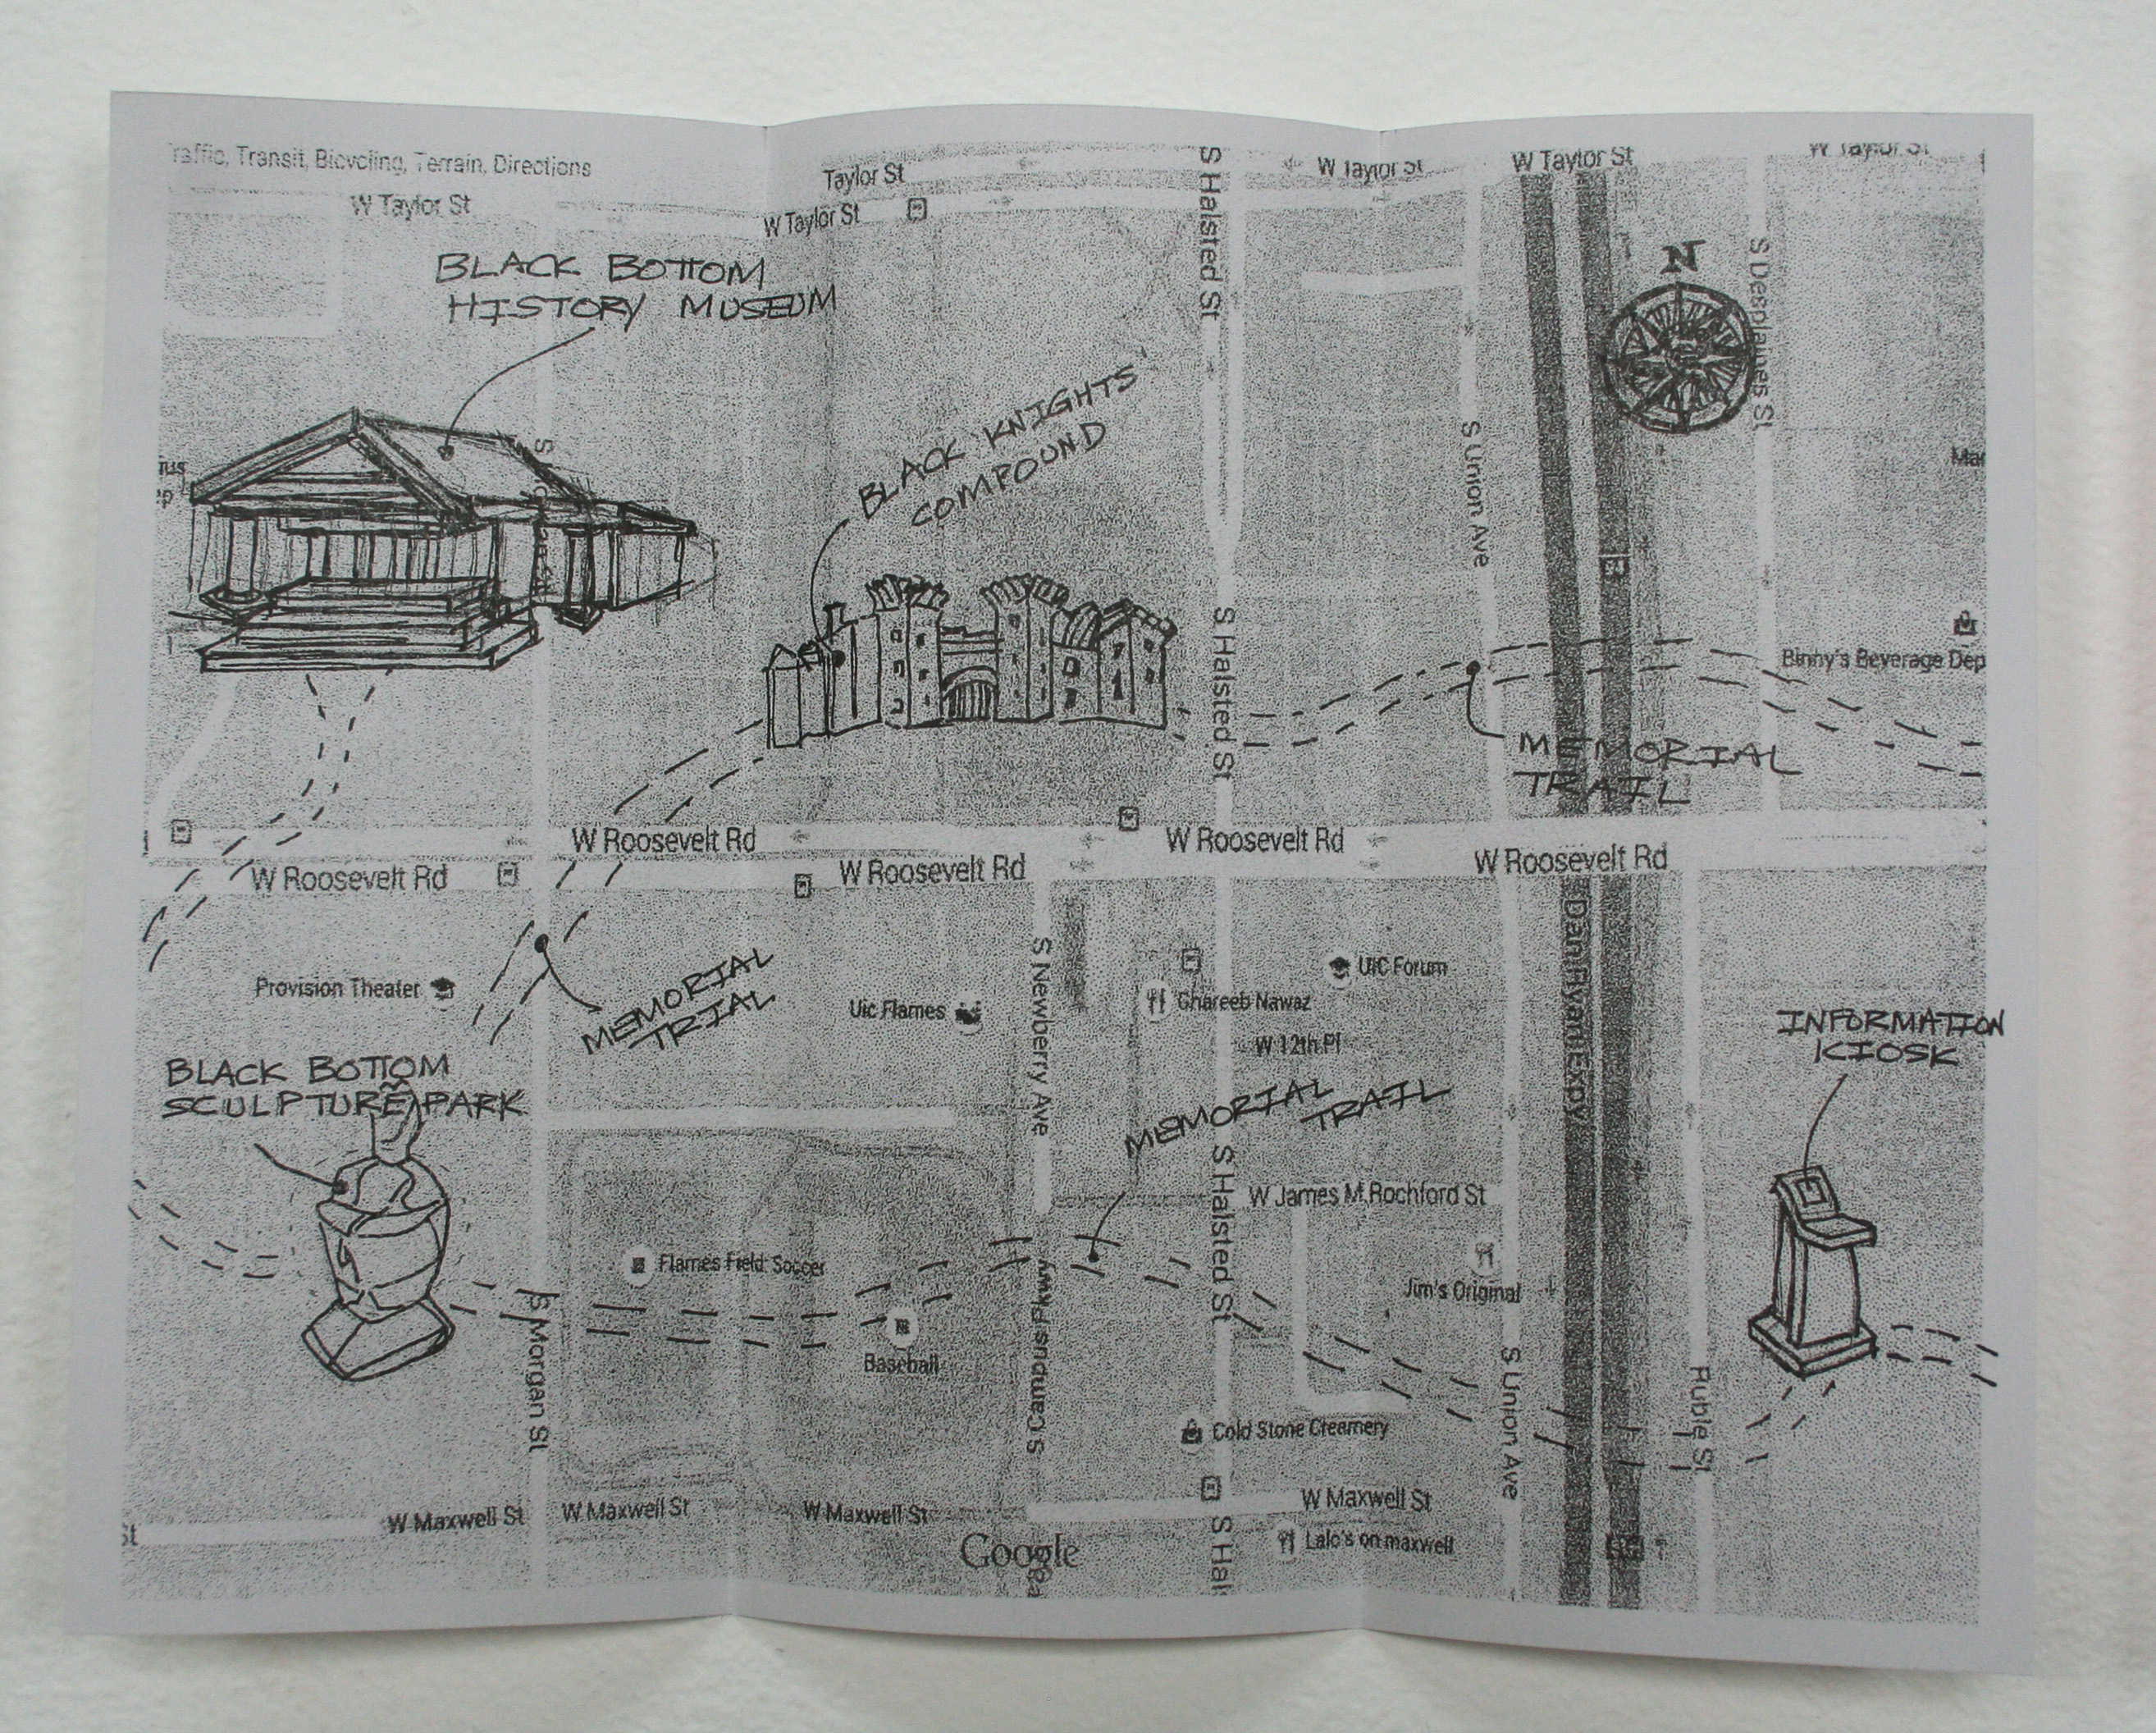 Traffic, Transit, Bicycling, Terrain, Directions
W Taylor St
Taylor St
W Taylor St
W Taylor St
W Taylor St
W Taylor St
S Halsted St
BLACK BOTTOM
HISTORY MUSEUM
N
S Desplaines St
BLACK KNIGHTS'
COMPOUND
S Union Ave
Binny's Beverage Dep
S Halsted St
MEMORIAL
TRAIL
W Roosevelt Rd
W Roosevelt Rd
W Roosevelt Rd
W Roosevelt Rd
W Roosevelt Rd
Dan Ryan Expy
Provision Theater
MEMORIAL
TRIAL
Uic Flames
S Newberry Ave
UIC Forum
Ghareeb Nawaz
W 12th Pl
INFORMATION
KIOSK
BLACK BOTTOM
SCULPTURE PARK
MEMORIAL
TRAIL
S Halsted St
W James M Rochford St
Flames Field: Soccer
Jim's Original
Baseball
S Morgan St
S Campus Pkwy
S Union Ave
Ruble St
Cold Stone Creamery
St
W Maxwell St
W Maxwell St
W Maxwell St
W Maxwell St
Google
S Hal
Lalo's on maxwell